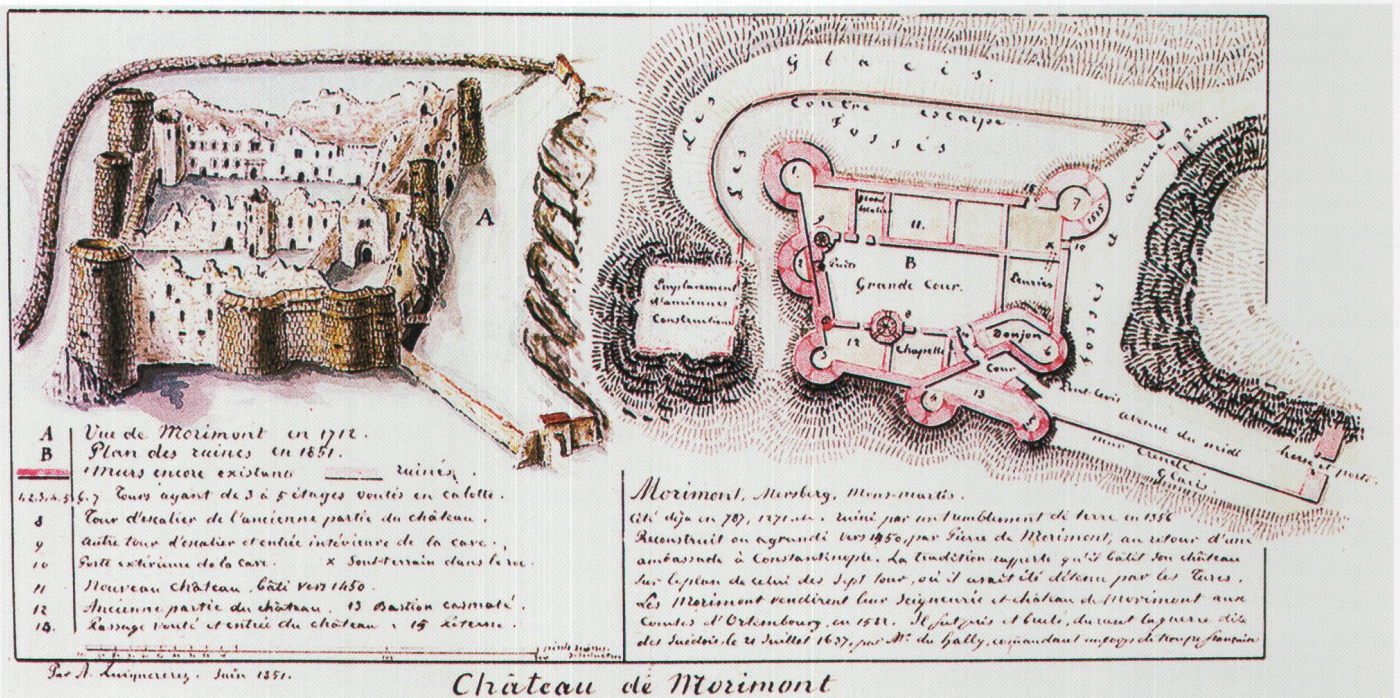 Les Glacis.
Contre escarpe
Les Fossés
avenue
Port.
1
7
1515
11.
9
Puits
B
10
x
Grande Cour.
Emplacement
d'anciennes
Constructions
8
12
Chapelle
Donjon
6
Cour
4
13
Fossés
Pont-levis
avenue du midi
herse et porte.
mur crenelé
Glacis
A
A Vue de Morimont en 1712.
B Plan des ruines en 1851.
Murs encore existants ruinés.
1.2.3.4.5.6.7 Tours ayant de 3 à 5 étages voutés en calotte.
8 Tour d'escalier de l'ancienne partie du château.
9 Autre tour d'escalier et entrée intérieure de la cave.
10 Porte extérieure de la cave. x Sous-terrain dans le roc.
11 Nouveau château, bâti vers 1450.
12 Ancienne partie du château. 13 Bastion casmaté.
Passage vouté et entrée du château. 15
Morimont, Morsberg, Mons-martis.
Cité déja en 787, 1271 ruiné par un tremblement de terre en 1356
Reconstruit ou agrandi vers 1450, par Pierre de Morimont, au retour d'une
ambassade à Constantinople. La tradition rapporte qu'il bâtit son château
sur le plan de celui des Sept tour, où il avait été détenu par les Turcs.
Les Morimont vendirent leur Seigneurie et château de Morimont aux
Comtes d'Ortembourg, en 1582. Il fut pris et brulé, durant la guerre dite
des Suédois, le 21 Juillet 1637, par Mr. du Hally, commandant un corps de troupe française
Par A. Quiquerez. Juin 1851.
Château de Morimont